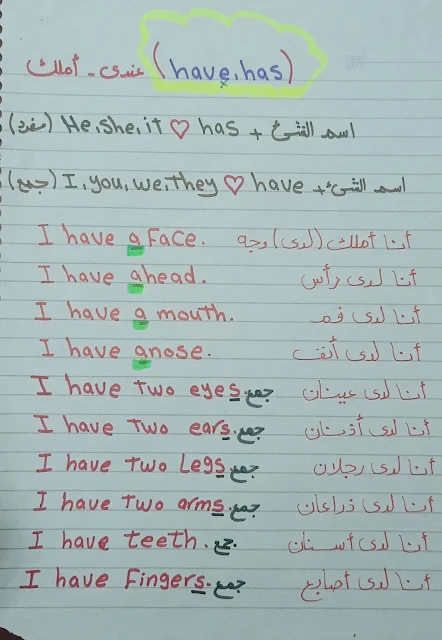 (have, has) عندى - أملك
(مفرد) He, she, it ♡ has + اسم الشئ
(جمع) I, you, we, they ♡ have + اسم الشئ
I have a face. أنا أملك (لدى) وجه
I have ahead. أنا لدى رأس
I have a mouth. أنا لدى فم
I have anose. أنا لدى أنف
I have two eyes. جمع أنا لدى عينان
I have two ears. جمع أنا لدى أذنان
I have two Legs. جمع أنا لدى رجلان
I have two arms. جمع أنا لدى ذراعان
I have teeth. جمع أنا لدى أسنان
I have Fingers. جمع أنا لدى أصابع